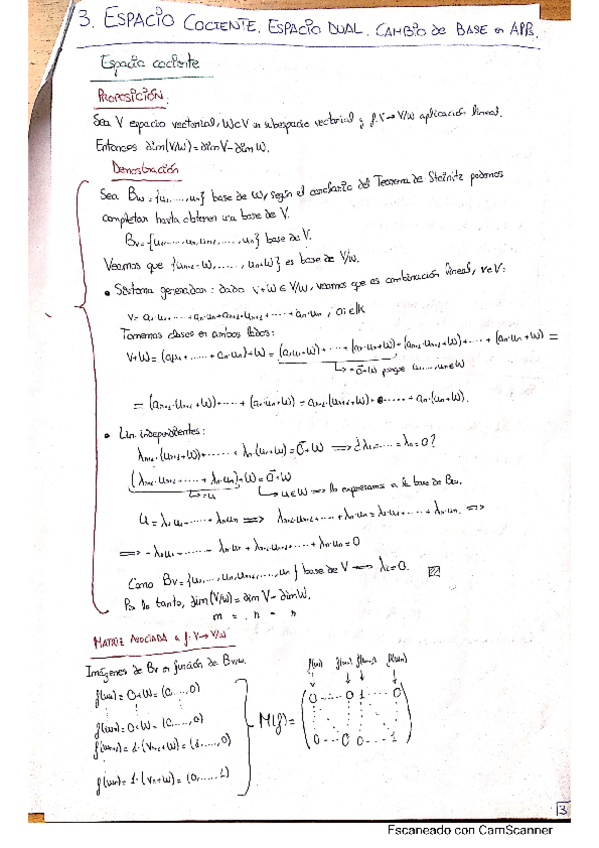 3. ESPACIO COCIENTE. ESPACIO DUAL. CAMBIO de BASE en APB.
Espacio cociente
PROPOSICIÓN.
Sea V espacio vectorial, W⊂V un subespacio vectorial y f:V→V/W aplicación lineal.
Entonces dim(V/W) = dim V - dim W.
Demostración
Sea Bw = {u1,....,un} base de W, según el corolario del Teorema de Steinitz podemos
completar hasta obtener una base de V.
Bv = {u1,....,un,un+1,....,um} base de V.
Veamos que {un+1+W,.....,um+W} es base de V/W.
• Sistema generador: dado v+W ∈ V/W, veamos que es combinación lineal, v∈V:
v = a1·u1+....+an·un+an+1·un+1+....+am·um , ai∈K
Tomamos clases en ambos lados:
v+W = (a1u1+.....+am·um)+W = (a1·u1+W)+....+(an·un+W)+(an+1·un+1+W)+....+(am·um+W) =
↳ = 0+W porque u1,....,un∈W
= (an+1·un+1+W)+....+(am·um+W) = an+1·(un+1+W)+.....+am·(um+W).
• Lin. independientes:
λn+1·(un+1+W)+.....+λm·(um+W) = 0+W ⟹ ¿λn+1=....=λm=0?
(λn+1·un+1+....+λm·um)+W = 0+W
↳ = u ↳ u∈W ⟹ lo expresamos en la base de Bw.
u = λ1u1+.....+λnun ⟹ λn+1·un+1+....+λm·um = λ1·u1+....+λn·un. ⟹
⟹ -λ1u1-.....-λn·un+λn+1·un+1+....+λm·um = 0
Como Bv = {u1,....,un,un+1,....,um} base de V ⟹ λi=0.
Por lo tanto, dim(V/W) = dim V - dim W.
MATRIZ ASOCIADA a f: V→V/W
Imágenes de Bv en función de Bv/w.
f(u1) = 0+W = (0,....,0)
f(un) = 0+W = (0,....,0)
f(un+1) = 1·(vn+1+W) = (1,....,0)
f(um) = 1·(vm+W) = (0,.....,1)
f(u1) f(un) f(un+1) f(um)
M(f) =
0 .... 0 1 .... 0
0 ... 0 0 .... 1
3
Escaneado con CamScanner